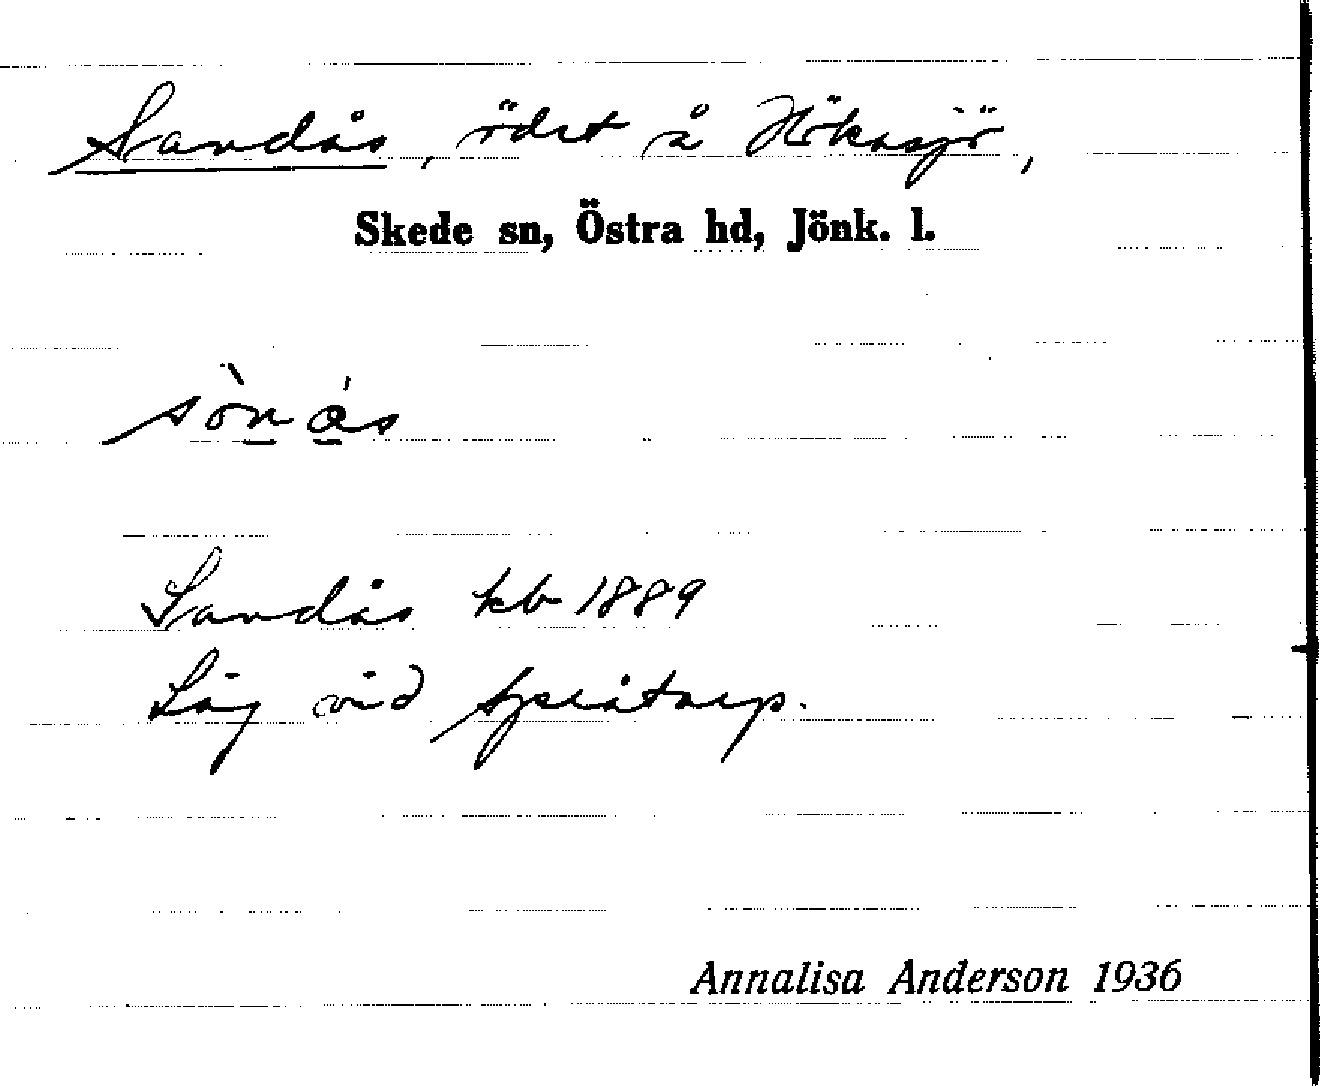 Sandås, ödet å Hökasjö,
Skede sn, Östra hd, Jönk. l.
Sandås kb 1889
Låg vid
Annalisa Anderson 1936